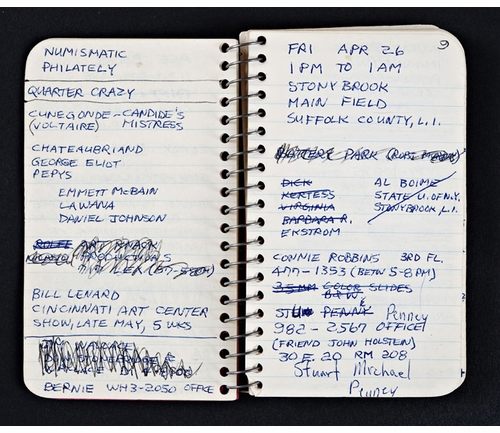 NUMISMATIC
PHILATELY
QUARTER CRAZY
CUNEGONDE-CANDIDE'S
(VOLTAIRE) MISTRESS
CHATEAUBRIAND
GEORGE ELIOT
PEPYS
EMMETT McBAIN
LAWANA
DANIEL JOHNSON
ART KNACK
PRODUCTIONS
BILL LENARD
CINCINNATI ART CENTER
SHOW, LATE MAY, 5 WKS
BERNIE WH3-2050 OFFICE
9
FRI APR 26
1PM TO 1AM
STONYBROOK
MAIN FIELD
SUFFOLK COUNTY, L.I.
BATTERY PARK
DICK
KERTESS
VIRGINIA
BARBARA R.
EKSTROM
AL BOIME
STATE U. OF N.Y.
STONYBROOK, L.I.
CONNIE ROBBINS 3RD FL.
477-1353 (BETW 5-8PM)
35MM COLOR SLIDES
B&W
PENNY Penney
982-2567 OFFICE
(FRIEND JOHN HOLSTEIN)
30 E. 20 RM 208
Stuart Michael
Penney